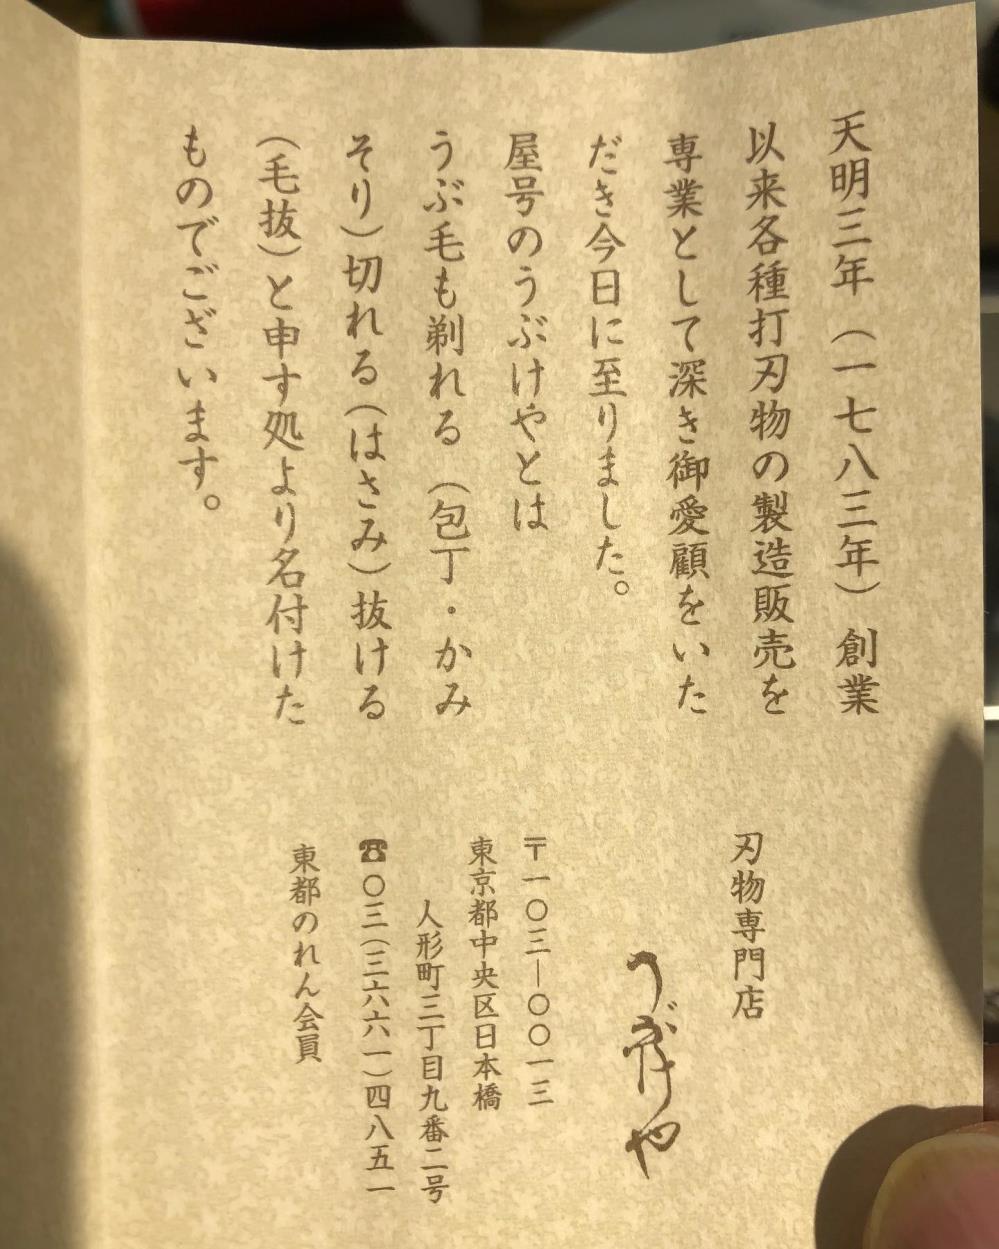 天明三年（一七八三年）創業
以来各種打刃物の製造販売を
専業として深き御愛顧をいた
だき今日に至りました。
屋号のうぶけやとは
うぶ毛も剃れる（包丁・かみ
そり）切れる（はさみ）抜ける
（毛抜）と申す処より名付けた
ものでございます。
刃物専門店
うぶけや
〒一〇三－〇〇一三
東京都中央区日本橋
人形町三丁目九番二号
☎〇三（三六六一）四八五一
東都のれん会員